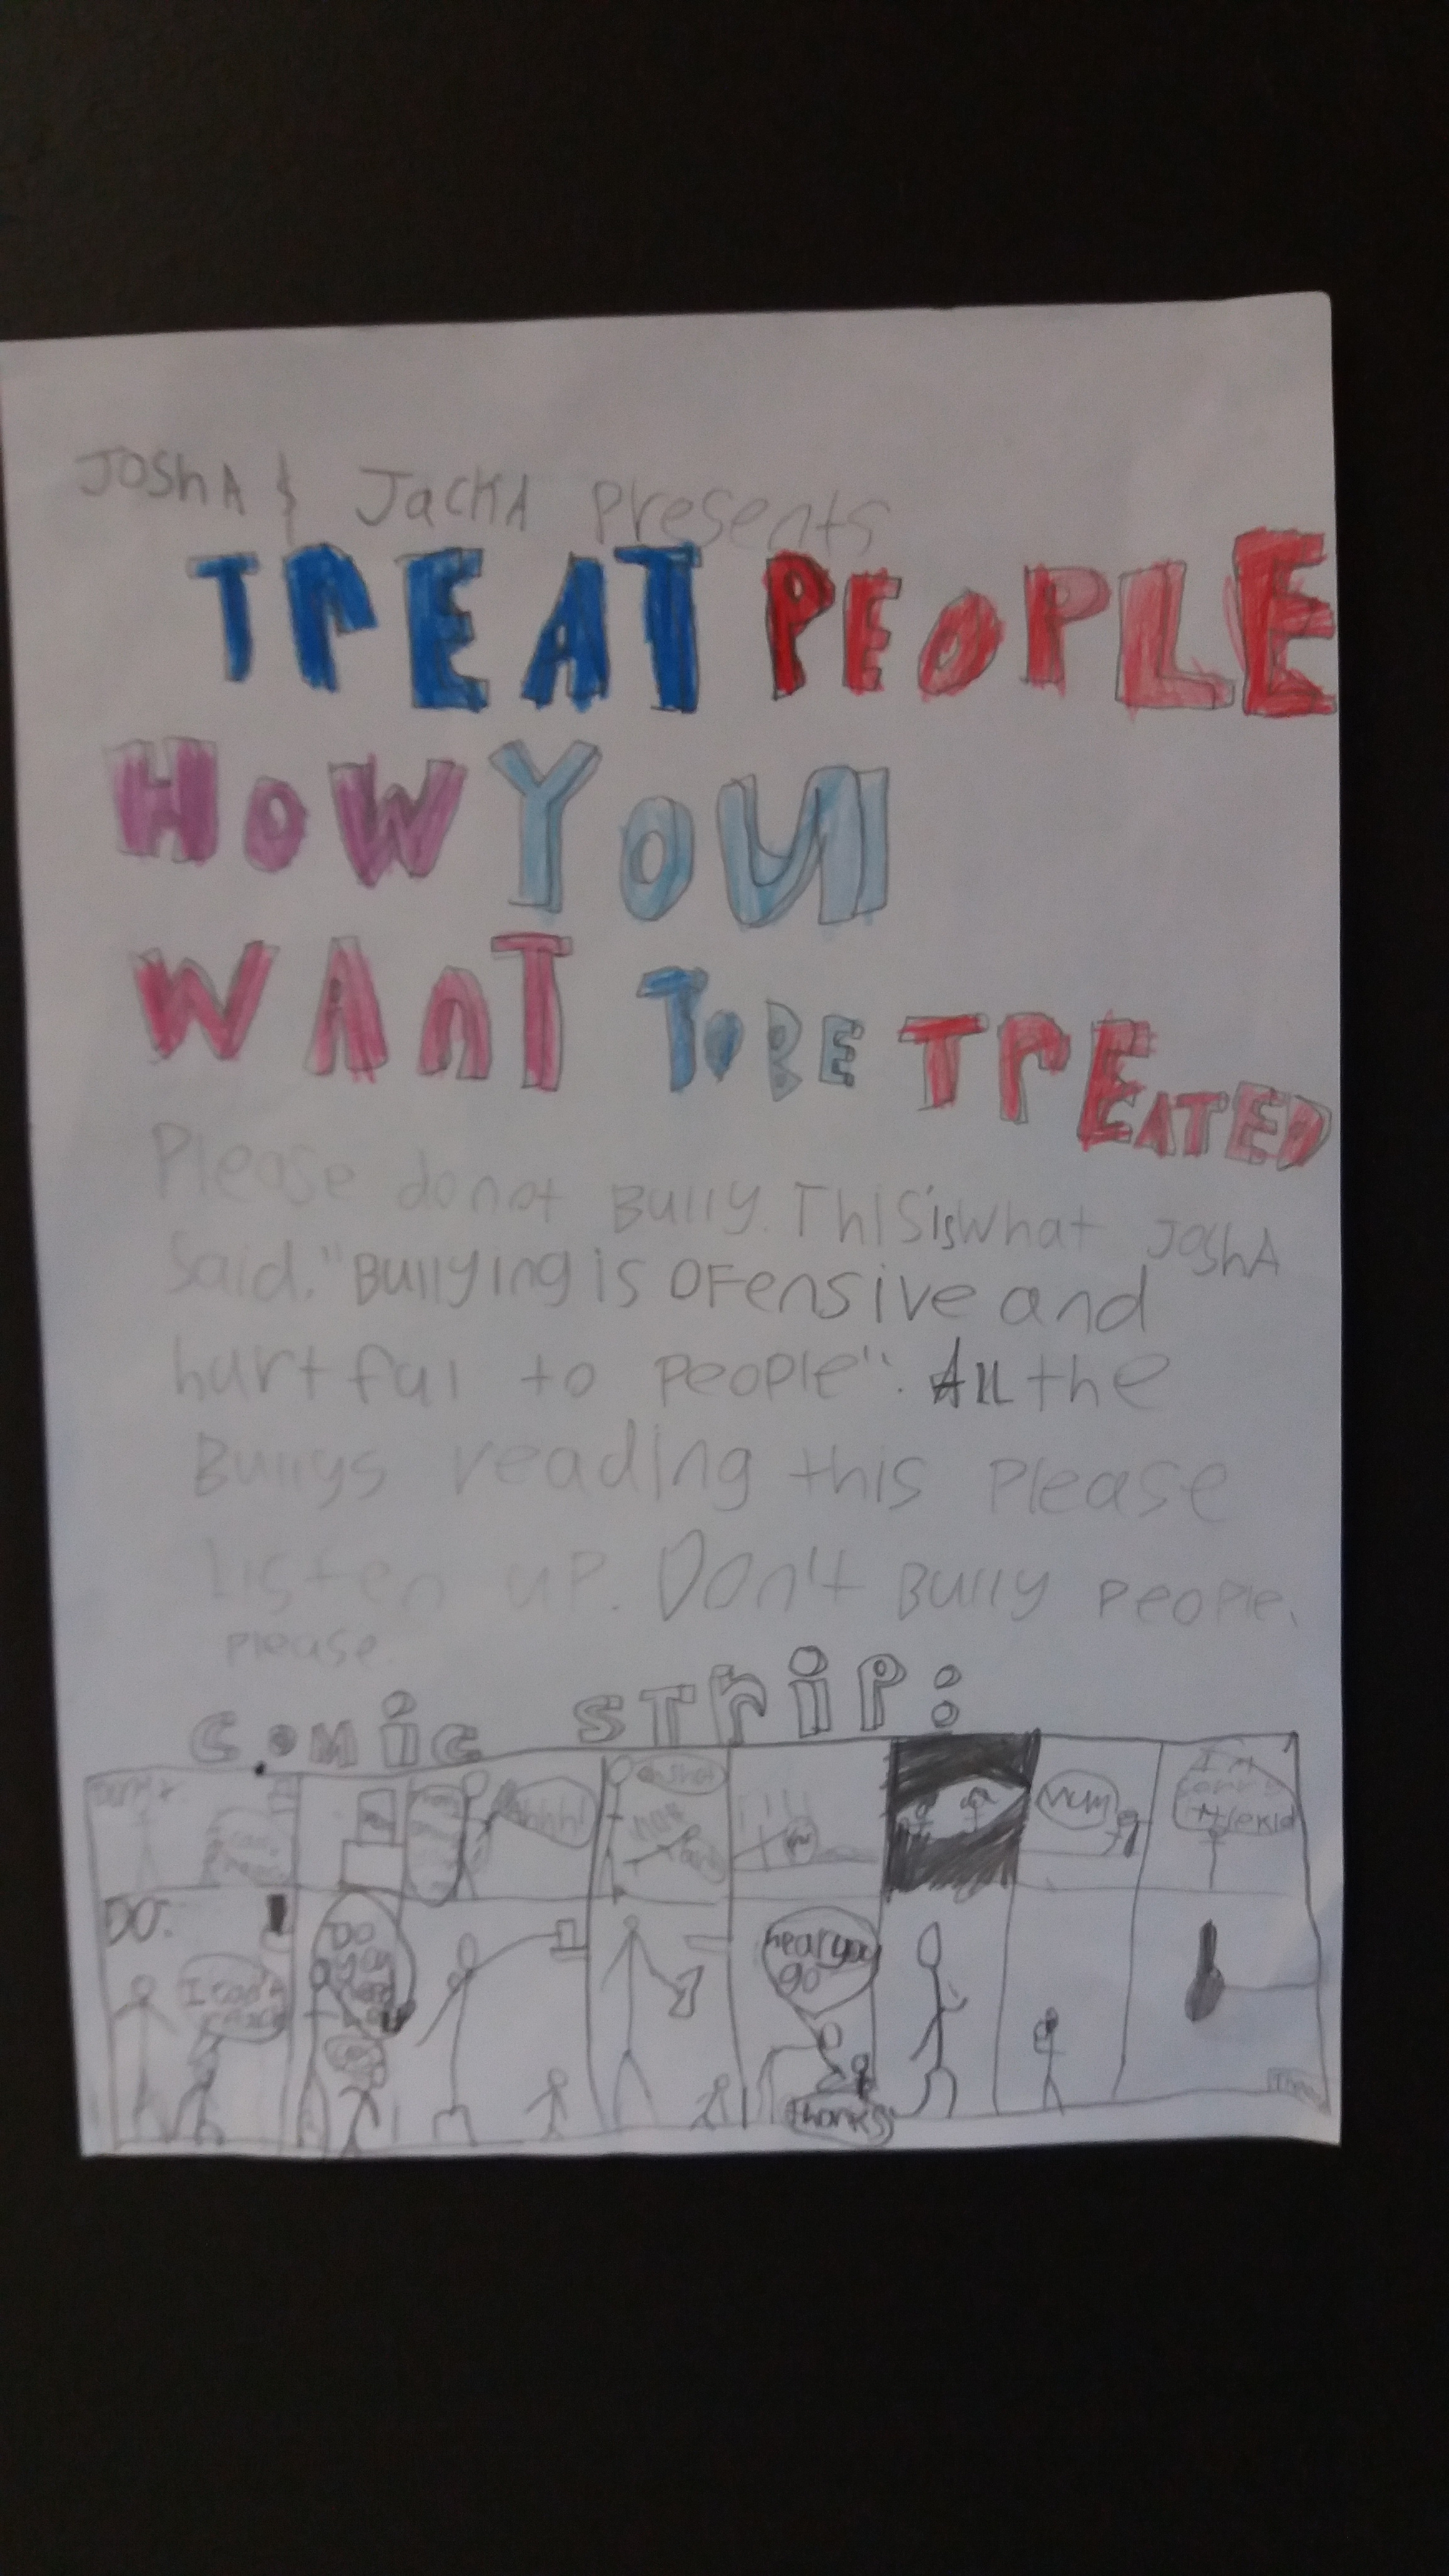 JoshA & JackA Presents
TrEAT PEOPLE
HoW YoU
WAnT To BE TrEATED
Please do not Bully. ThIS is what JoshA
Said. "Bullying is OFensive and
hurtful to people". All the
Bullys reading this Please
Listen up. Don't Bully people.
please.
comic STriP:
Mum
I'm
sorry
DO:
I can't
Do
you
hear you
go
thanks